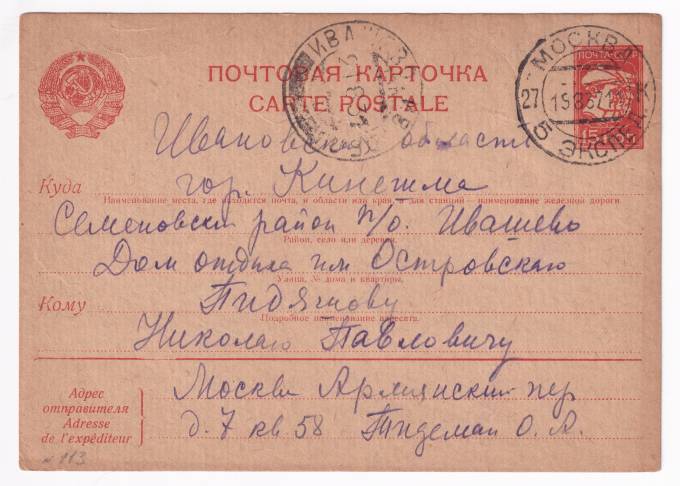 ПОЧТОВАЯ КАРТОЧКА
CARTE POSTALE
ПОЧТА СССР
МОСКВА
27 15 8 37
ЭКСПЕД
Ивановской области
Куда гор. Кинешма
Наименование места, где находится почта, и области или края, а для станций — наименование железной дороги
Семеновский район п/о. Ивашево
Район, село или деревня
Дом отдыха им Островского
Улица, № дома и квартиры
Кому
Подробное наименование адресата
Николаю Павловичу
Адрес отправителя
Adresse de l'expéditeur
Москва Армянский пер
д. 7 кв 58 Тидеман О. А.
№ 113